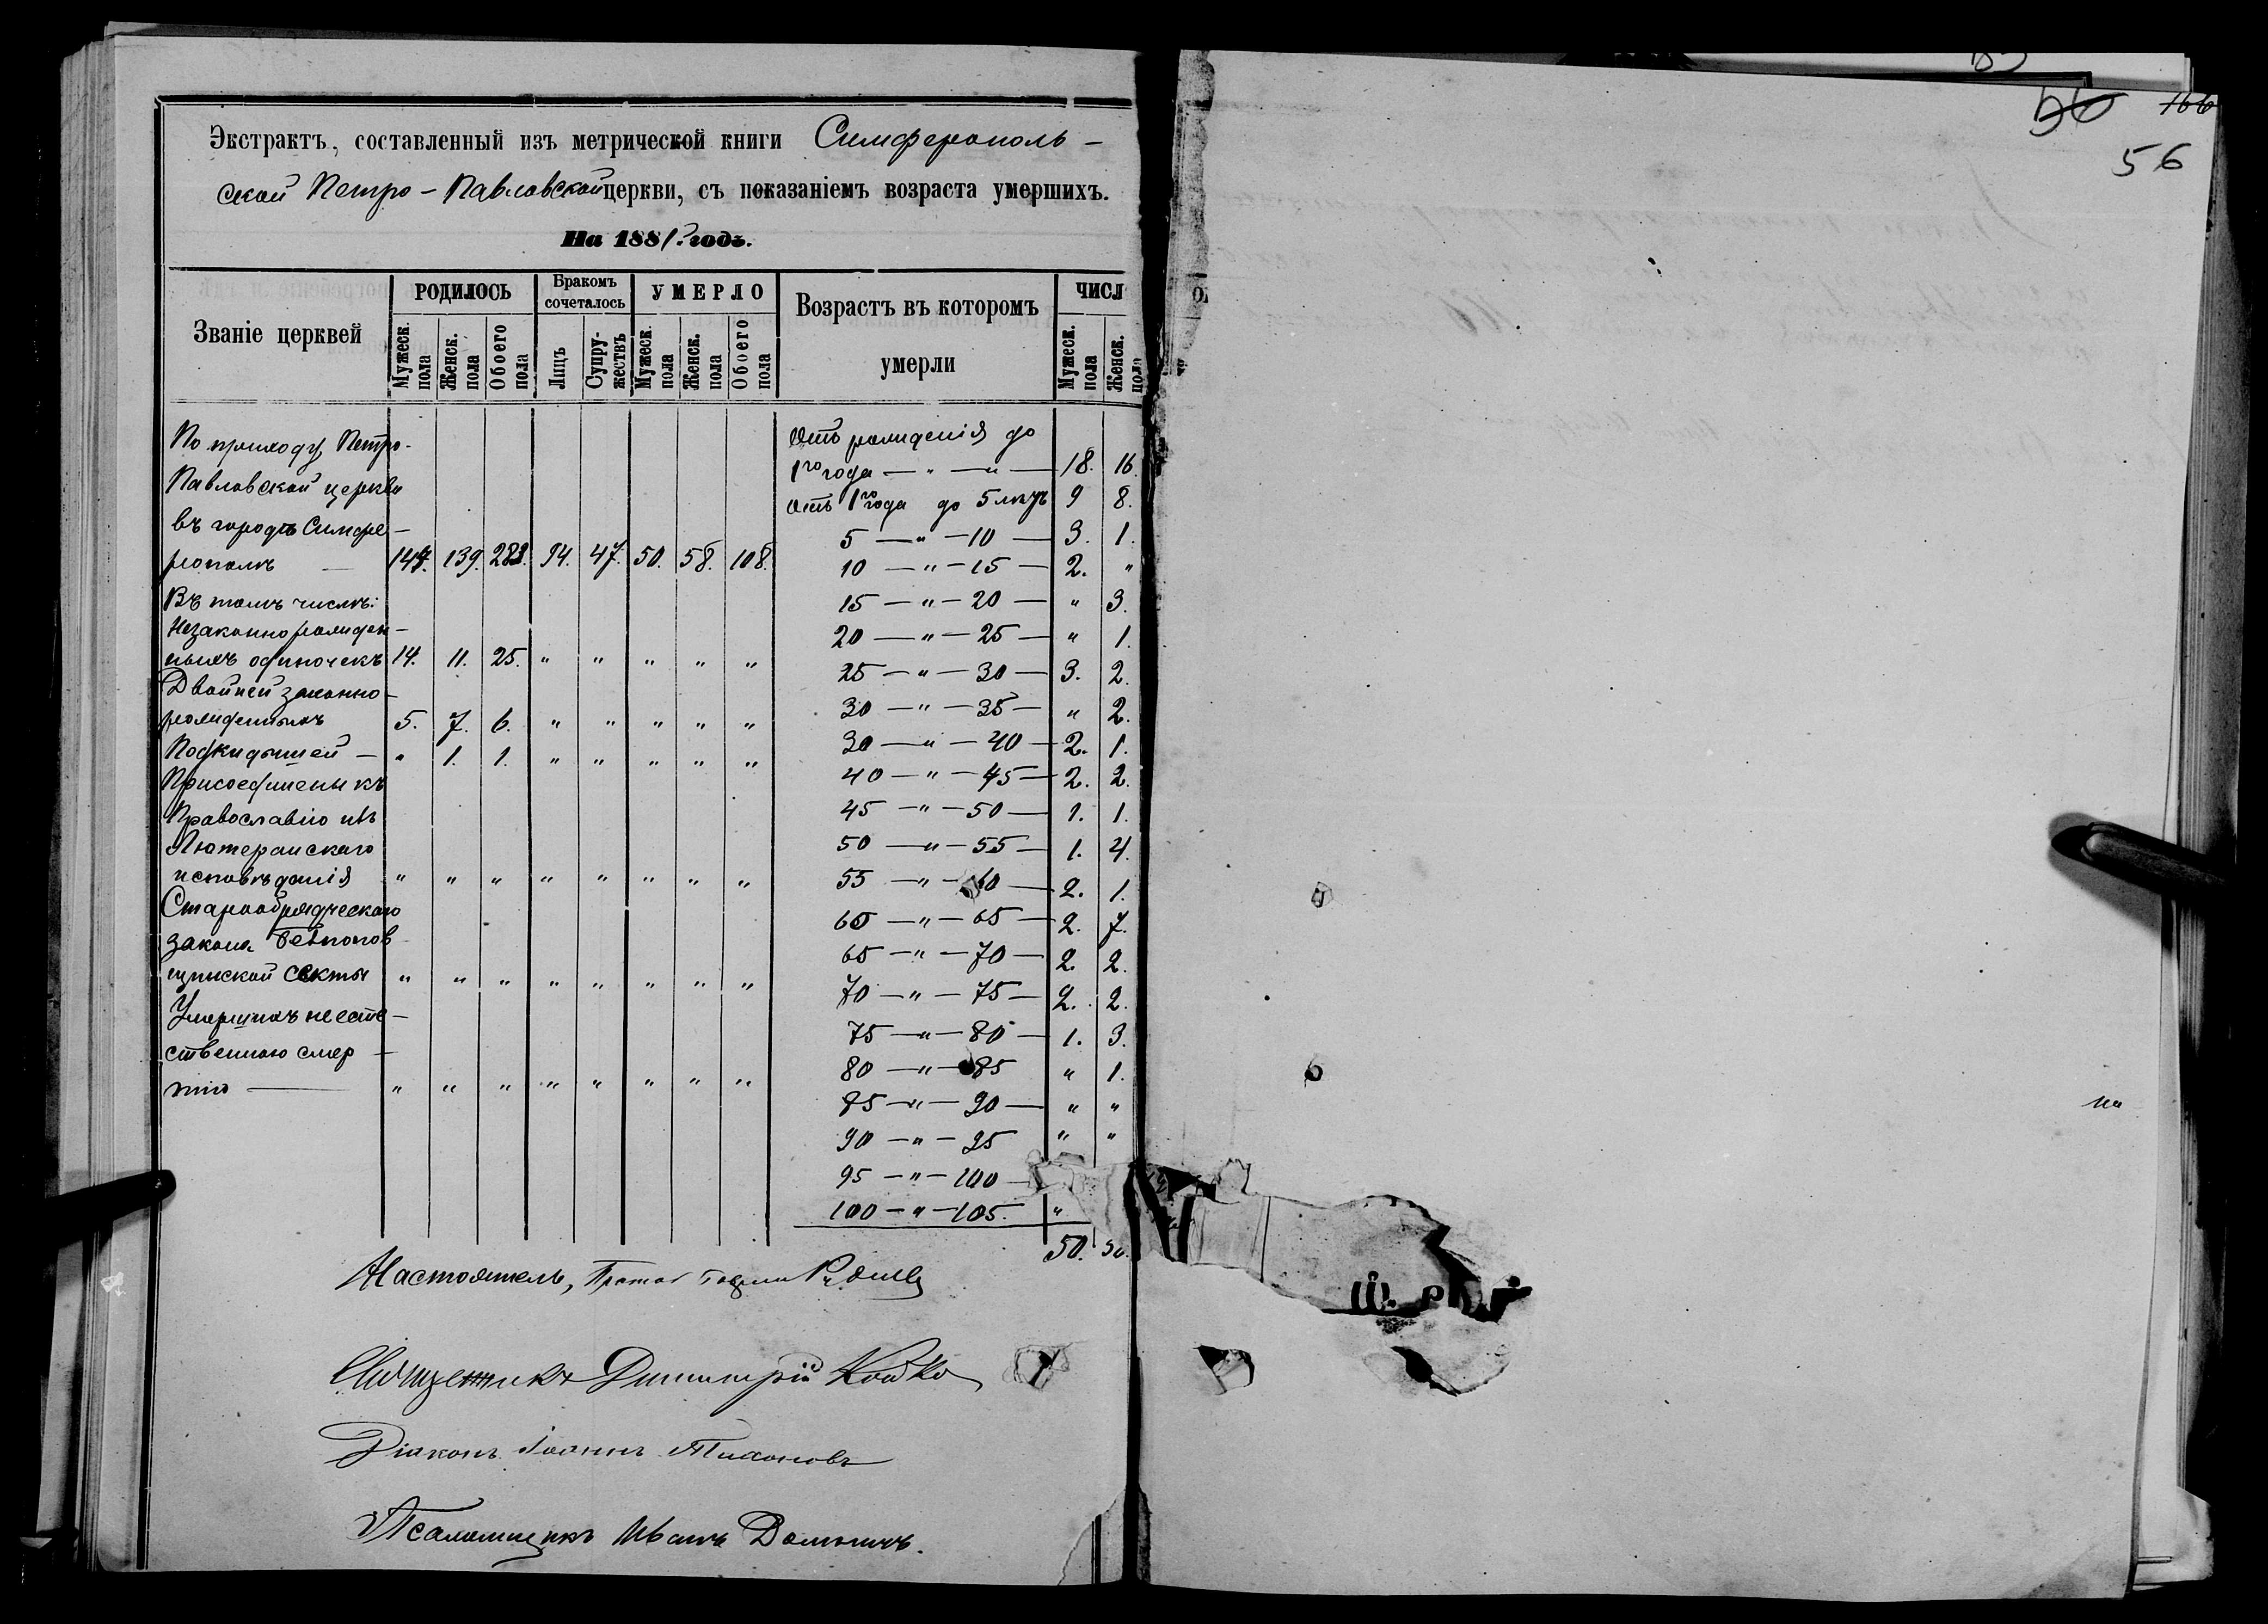 Экстрактъ, составленный изъ метрической книги Симферополь-
ской Петро-Павловской церкви, съ показаніемъ возраста умершихъ.
На 1881. годъ.
Званіе церквей
РОДИЛОСЬ
Бракомъ сочеталось
УМЕРЛО
Возрастъ въ которомъ умерли
ЧИСЛ
Мужеск. пола
Женск. пола
Обоего пола
Лицъ
Супружествъ
Мужеск. пола
Женск. пола
Обоего пола
Мужеск. пола
Женск. пола
По приходу Петро-
Павловской церкви
въ городѣ Симфе-
рополѣ — 139. 283. 94. 47. 50. 58. 108.
Въ томъ числѣ:
Незаконнорожден-
ныхъ одиночекъ 14. 11. 25. " " " " "
Двойней законно-
рожденныхъ 5. 7. 6. " " " " "
Подкидышей — " 1. 1. " " " " "
Присоединены къ
Православію изъ
Лютеранскаго
исповѣданія " " " " " " " "
Старообрядческаго
закона безпопов-
щинской секты " " " " " " " "
Умершихъ неесте-
ственною смер-
тію — " " " " " " " "
Отъ рожденія до
1го года — " — " — 18. 16.
отъ 1го года до 5 лѣтъ 9 8.
5 — " — 10 — 3. 1.
10 — " — 15 — 2. "
15 — " — 20 — " 3.
20 — " — 25 — " 1.
25 — " — 30 — 3. 2.
30 — " — 35 — " 2.
30 — " — 40 — 2. 1.
40 — " — 45 — 2. 2.
45 — " — 50 — 1. 1.
50 — " — 55 — 1. 4.
55 — " — 60 — 2. 1.
60 — " — 65 — 2. 7.
65 — " — 70 — 2. 2.
70 — " — 75 — 2. 2.
75 — " — 80 — 1. 3.
80 — " — 85 " 1.
85 — " — 90 — " "
90 — " — 95 " "
95 — " — 100 —
100 — " — 105. "
50.
Настоятель,
Священникъ Димитрій Койко
Діаконъ Іоаннъ Тихоновъ
Псаломщикъ Иванъ
56
166
56